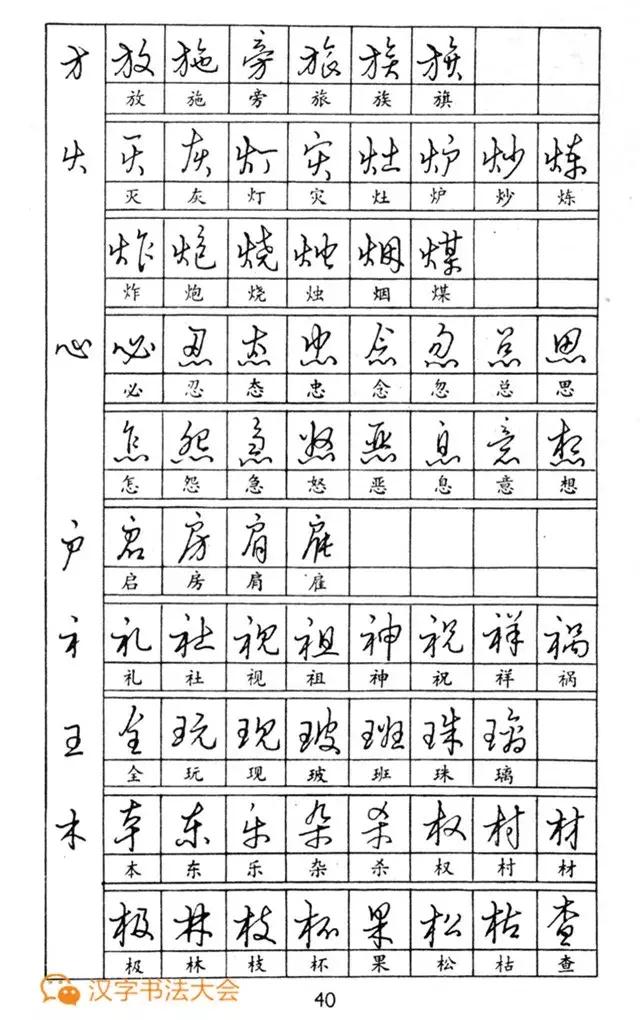 方 放 施 旁 旅 族 旗
放 施 旁 旅 族 旗
火 灭 灰 灯 灾 灶 炉 炒 炼
灭 灰 灯 灾 灶 炉 炒 炼
炸 炮 烧 烛 烟 煤
炸 炮 烧 烛 烟 煤
心 必 忍 态 忠 念 忽 总 思
必 忍 态 忠 念 忽 总 思
怎 怨 急 怒 恶 息 意 想
怎 怨 急 怒 恶 息 意 想
户 启 房 肩 雇
启 房 肩 雇
礻 礼 社 视 祖 神 祝 祥 祸
礼 社 视 祖 神 祝 祥 祸
王 全 玩 现 玻 班 珠 璃
全 玩 现 玻 班 珠 璃
木 本 东 乐 杂 杀 权 村 材
本 东 乐 杂 杀 权 村 材
极 林 枝 杯 果 松 枯 查
极 林 枝 杯 果 松 枯 查
汉字书法大会
40